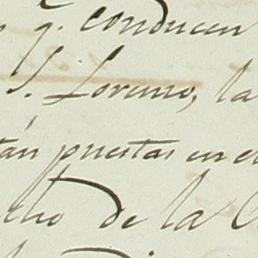 q. conducen
S. Lorenzo, la
tán puestas en el
cho de la C